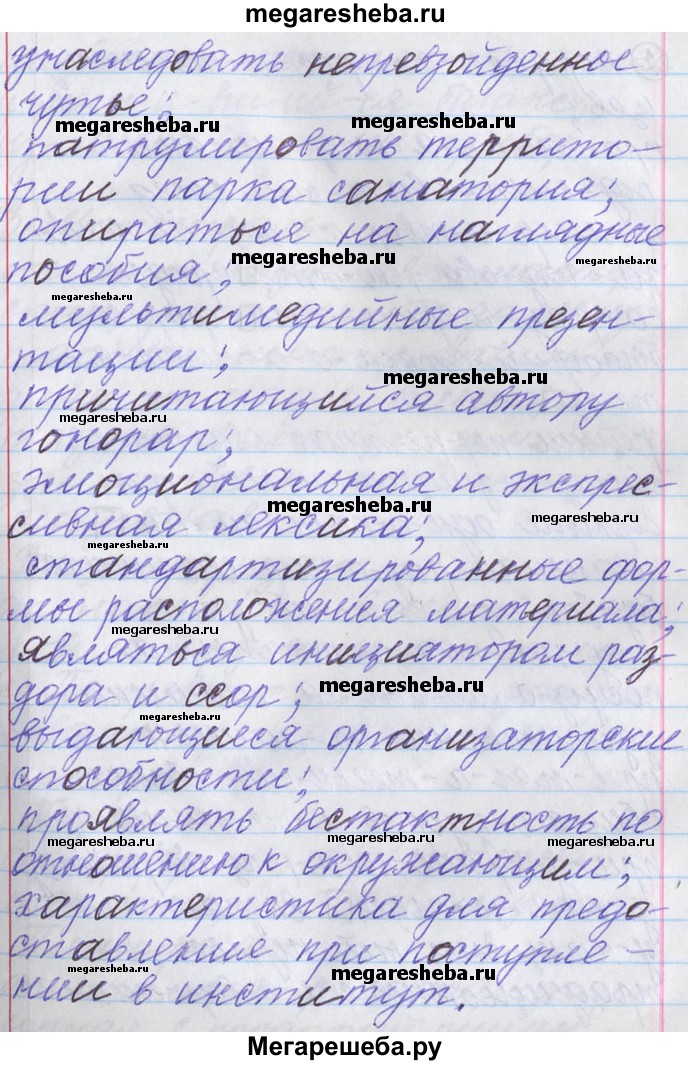 megaresheba.ru
унаследовать непревзойденное
чутье;
megaresheba.ru
megaresheba.ru
патрулировать террито-
рии парка санатория;
опираться на наглядные
megaresheba.ru
megaresheba.ru
пособия;
megaresheba.ru
мультимедийные презен-
тации;
megaresheba.ru
причитающийся автору
megaresheba.ru
гонорар;
эмоциональная и экспрес-
megaresheba.ru
megaresheba.ru
сивная лексика;
megaresheba.ru
стандартизированные фор-
мы расположения материала;
megaresheba.ru
являться инициатором раз-
megaresheba.ru
дора и ссор;
megaresheba.ru
выдающиеся организаторские
способности;
проявлять бестактность по
megaresheba.ru
megaresheba.ru
отношению к окружающим;
характеристика для предо-
ставления при поступле-
megaresheba.ru
megaresheba.ru
нии в институт.
Мегарешеба.ру